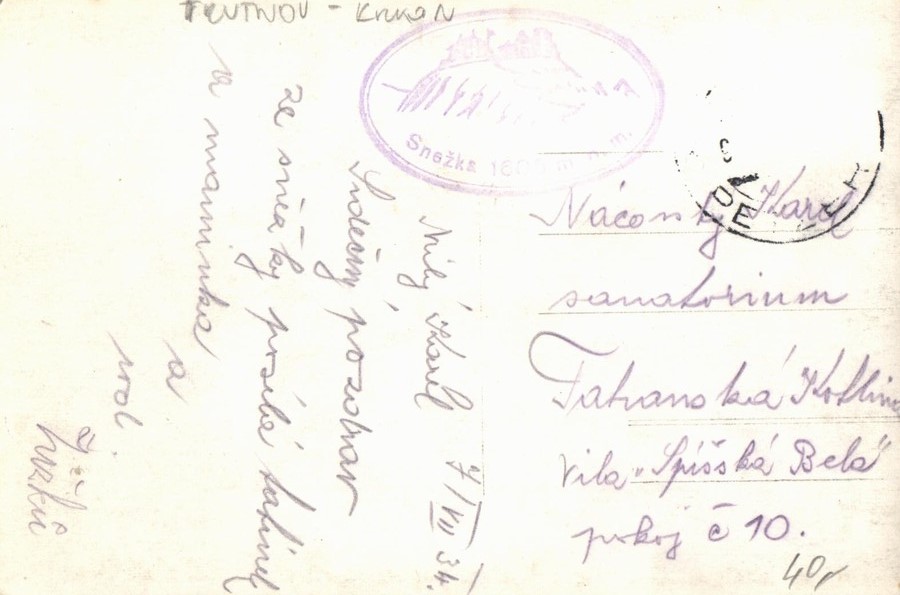 TRUTNOV - KRKON
Snežka 1605 m. n. m.
Milý Karel 7/VII 34.
Srdečný pozdrav
ze sněžky posílá tatínek
a maminka
a
rod.
Náčovský Karel
sanatorium
Tatranská Kotlina
Vila „Spišská Belá"
pokoj č 10.
40,